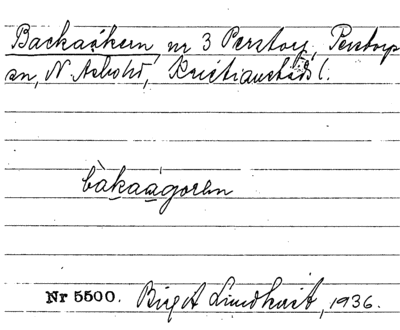 Backaåkern, nr 3 Perstorp, Perstorp
sn, N. Åsbohd, Kristianstads l.
bàkaågorən
Nr 5500. Birgit Lindkvist, 1936.